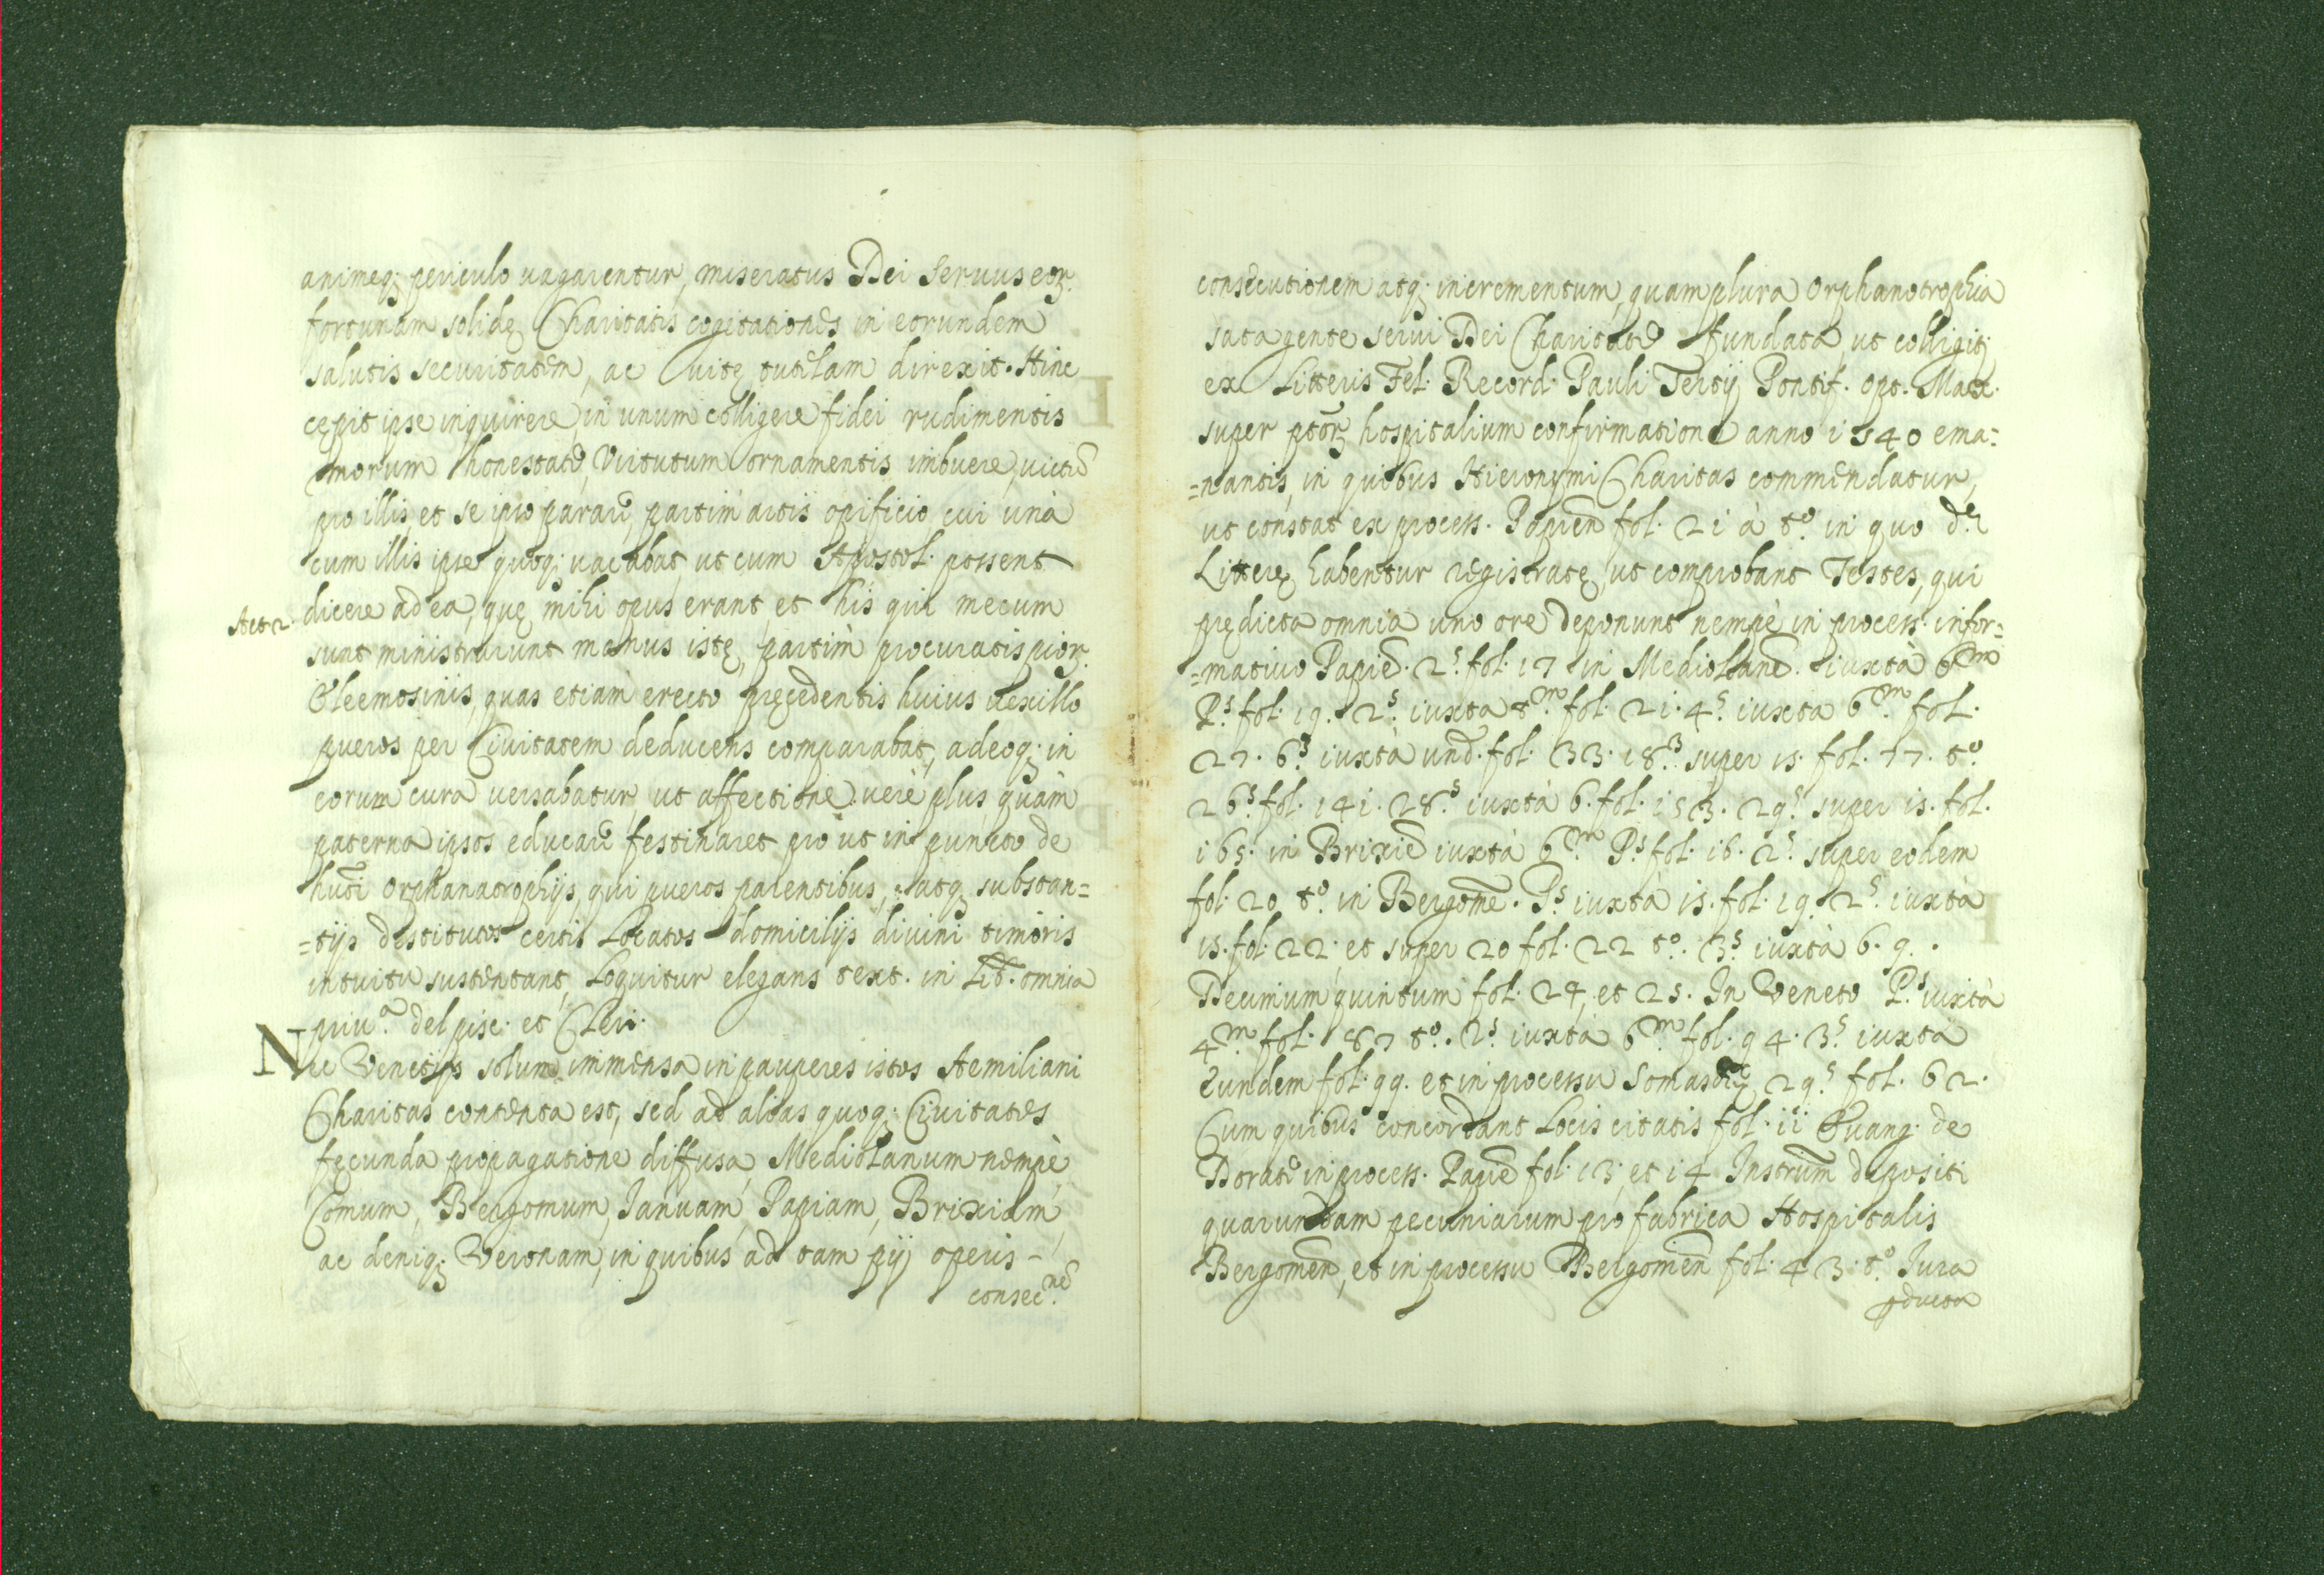 animeq; periculo vagarentur, miseratus Dei Seruus eor.
fortunam solidę Charitatis cogitationes in eorundem
salutis securitatem, ac uitę tutelam direxit. Hinc
cępit ipse inquirere, in unum colligere fidei rudimentis
morum honestate, Virtutum ornamentis imbuere, victũ
pro illis, et se ipso parare, partim artis opificio cui unà
cum illis ipse quoq; vacabat, ut cum Apostol. possent
Act 2.
dicere ad ea, quę mihi opus erant, et his qui mecum
sunt ministrarunt manus istę, partim procuratis pior.
Eleemosinis, quas etiam erecto pręcedentis huius uexillo
pueros per Ciuitatem deducens comparabat, adeoq; in
eorum cura uersabatur, ut affectione uerè plus quàm
paterna ipsos educare festinaret pro ut in puncto de
huĩ Orphanatrophijs, qui pueros parentibus, atq; substan=
=tijs destitutos certis Locatos domicilijs diuini timoris
intuitu sustentant, Loquitur elegans text. in Lib. omnia
priu.ª del pisc. et Cleri.
Nec Venetijs solum immensa in pauperes istos Aemiliani
Charitas contenta est, sed ad alias quoq; Ciuitates
fęcunda propagatione diffusa, Mediolanum nempè,
Comum, Bergomum, Ianuam, Papiam, Brixiam,
ac deniq; Veronam, in quibus ad tam pij operis -
consec.nẽ
consecutionem atq; incrementum, quamplura Orphanotrophia
satagente serui Dei Charitate fundata, ut colligit;
ex Litteris Fel. Record. Pauli Tertij Pontif. Opt. Max.
super ptor. hospitalium confirmatione anno 1540 ema=
=nantis, in quibus Hieronymi Charitas commendatur,
ut constat ex process. Papien fol. 21 à tº. in quo dę
Litterę habentur registratę, ut comprobant Testes, qui
prędicta omnia uno ore deponunt nempè in process. infor=
=matiuo Papiẽ. 2.s fol. 17 in Mediolanẽ. iuxtà 6m
P.s fol. 19. 2.s iuxta t.m fol. 21. 4.s iuxta 6.m fol.
27. 6.s iuxtà und. fol. 33. 18.s super 15. fol. 77. tº
26.s fol. 141. 28.s iuxtà 6. fol. 153. 29.s super 15. fol.
165. in Brixiẽ iuxtà 6.m P.s fol. 16. 2.s super eodem
fol. 20 tº. in Bergomẽ. P.s iuxtà 15. fol. 19. 2.s iuxtà
15. fol. 22; et super 20 fol. 22 tº. 3.s iuxtà 6. 9.
Decimum quintum fol. 24, et 25. In Veneto P.s iuxtà
4.m fol. 87 tº. 2.s iuxtà 6.m fol. 94. 3.s iuxtà
Eundem fol. 99. et in processu Somaschę 29.s fol. 62.
Cum quibus concordant Locis citatis fol. 11 Euang. de
Dorati in process. Papiẽ fol. 13, et 14 Instrum̃ depositi
quarundam pecuniarum pro fabrica Hospitalis
Bergomen, et in processu Bergomen fol. 43. tº. Iura
pducta